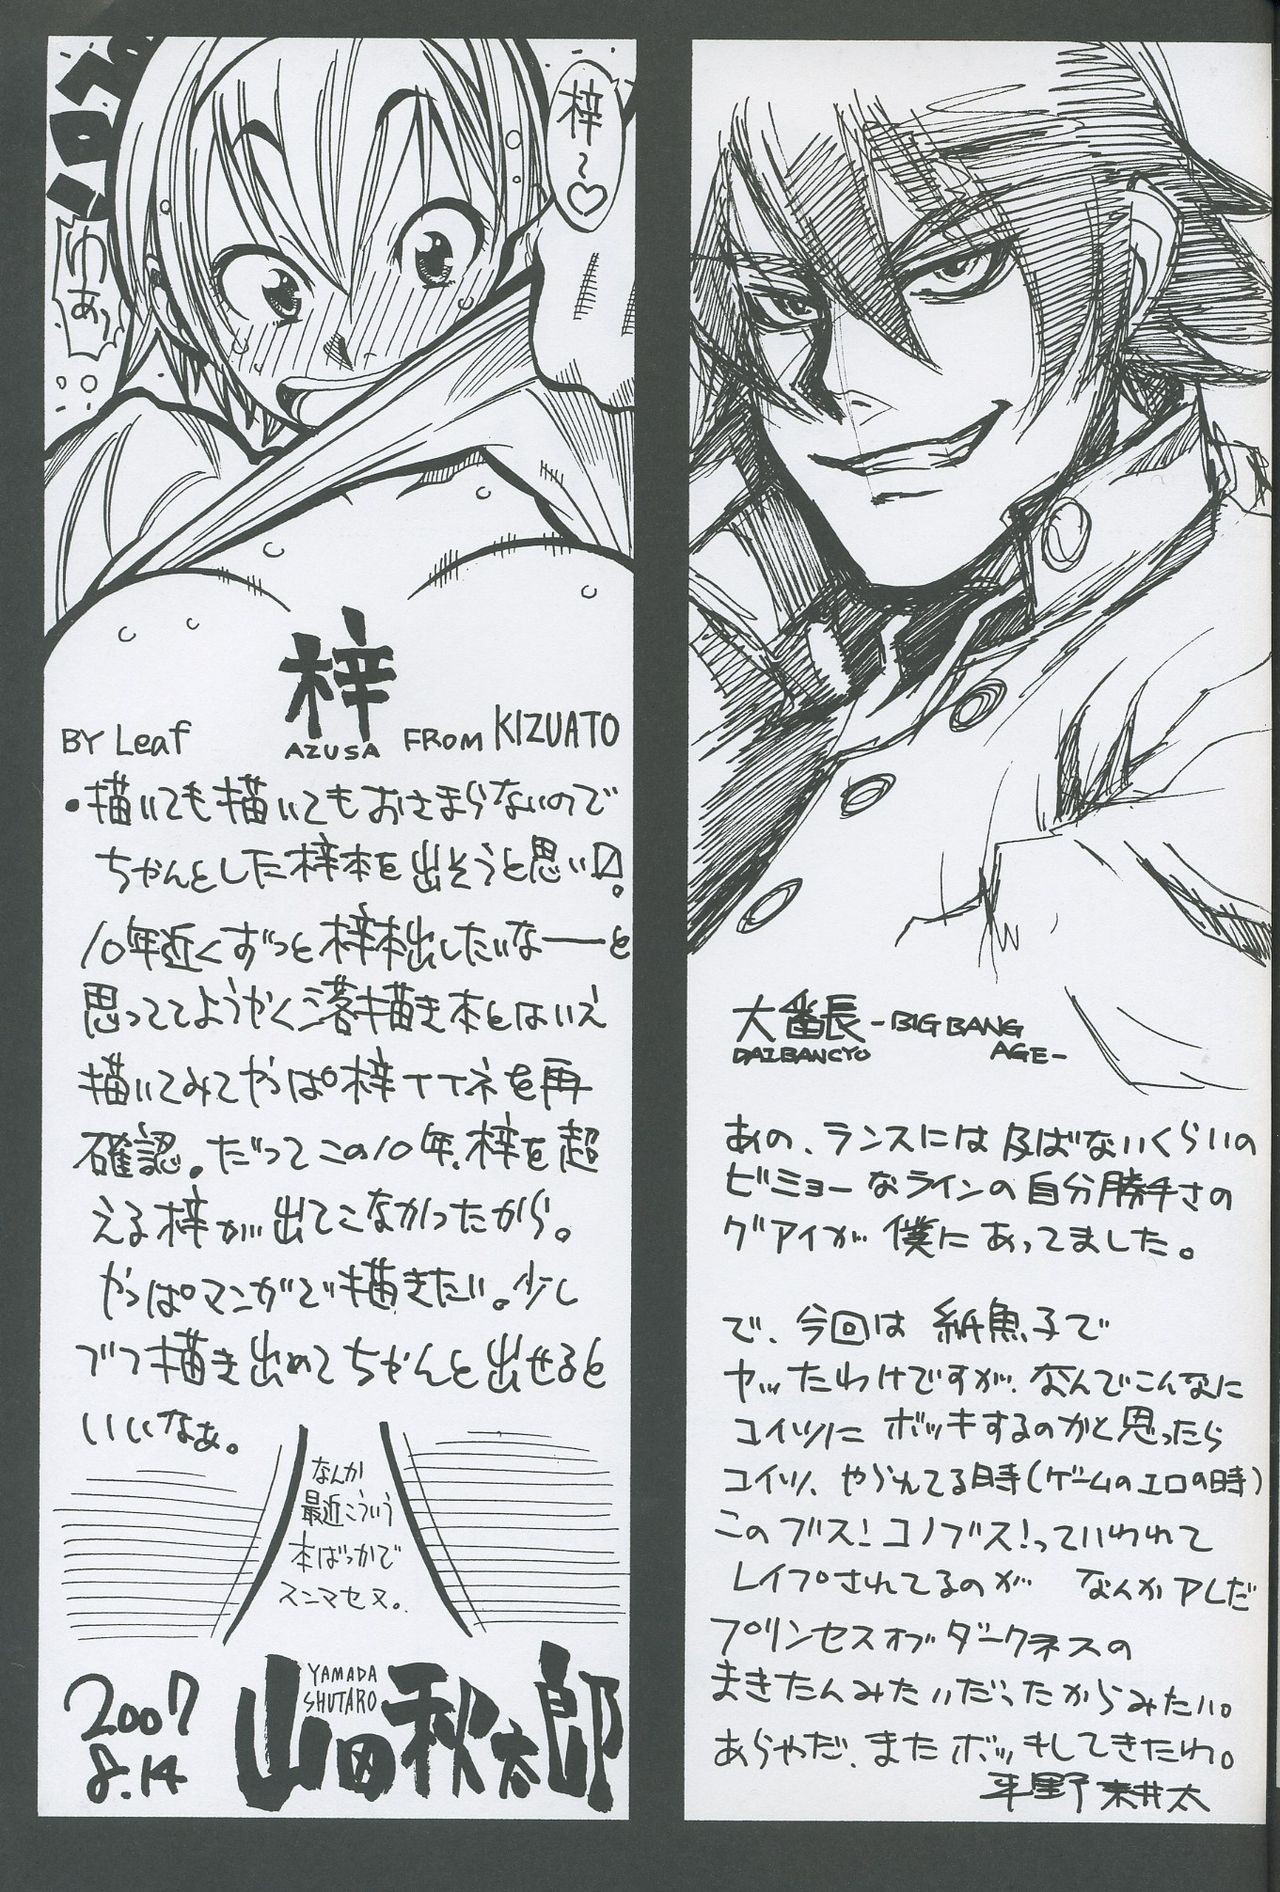 大番長 -BIG BANG
DAIBANCYO AGE-
あの、ランスには及ばないくらいの
ビミョーなラインの自分勝手さの
グアイが僕にあってました。
で、今回は 紙魚子で
ヤッたわけですが、なんでこんなに
コイツにボッキするのかと思ったら
コイツ、やられてる時(ゲームのエロの時)
このブス!コノブス!っていわれて
レイプされてるのが なんかアレだ
プリンセスオブダークネスの
まきたんみたいだったからみたい。
あらやだ、またボッキしてきたわ。
平野 耕太
梓〜♡
ゆあっ
梓
BY Leaf AZUSA FROM KIZUATO
・描いても描いてもおさまらないので
ちゃんとした梓本を出そうと思い〼。
10年近くずっと梓本出したいなーと
思っててようやく落描き本とはいえ
描いてみてやっぱ梓イイネを再
確認。だってこの10年、梓を超
える梓が出てこなかったから。
やっぱマンガで描きたい。少し
ずつ描き出めてちゃんと出せると
いいなぁ。
なんか
最近こういう
本ばっかで
スンマセヌ。
2007
8.14
YAMADA
SHUTARO
山田秋太郎